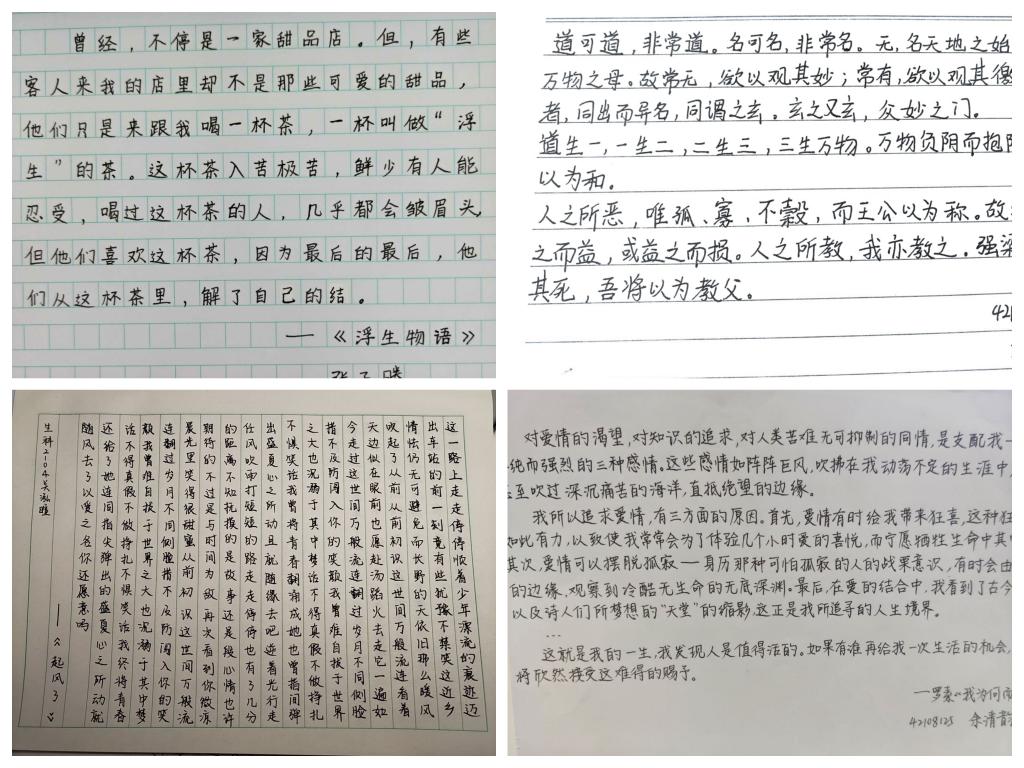 曾经，不停是一家甜品店。但，有些
客人来我的店里却不是那些可爱的甜品，
他们只是来跟我喝一杯茶，一杯叫做“浮
生”的茶。这杯茶入苦极苦，鲜少有人能
忍受，喝过这杯茶的人，几乎都会皱眉头，
但他们喜欢这杯茶，因为最后的最后，他
们从这杯茶里，解了自己的结。
——《浮生物语》
道可道，非常道。名可名，非常名。无，名天地之始
万物之母。故常无，欲以观其妙；常有，欲以观其徼
者，同出而异名，同谓之玄。玄之又玄，众妙之门。
道生一，一生二，二生三，三生万物。万物负阴而抱阳
以为和。
人之所恶，唯孤、寡、不穀，而王公以为称。故
之而益，或益之而损。人之所教，我亦教之。强梁
其死，吾将以为教父。
421
这一路上走走停停顺着少年漂流的痕迹迈
出车站的前一刻竟有些犹豫不禁笑这近乡
情怯仍无可避免而长野的天依旧那么暖风
吹起了从前从前初识这世间万般流连看着
天边似在眼前也愿赴汤蹈火去走它一遍如
今走过这世间万般流连翻过岁月不同侧脸
措不及防闯入你的笑颜我曾难自拔于世界
之大也沉溺于其中梦话不得真假不做挣扎
不惧笑话我曾将青春翻涌成她也曾指间弹
出盛夏心之所动且就随缘去吧逆着光行走
任风吹雨打短短的路走走停停也有了几分
的距离不知抚摸的是故事还是段心情也许
期待的不过是与时间为敌再次看到你微凉
晨光里笑得很甜蜜从前初识这世间万般流
连翻过岁月不同侧脸措不及防闯入你的笑
颜我曾难自拔于世界之大也沉溺于其中梦
话不得真假不做挣扎不惧笑话我终将青春
还给了她连同指尖弹出的盛夏心之所动就
随风去了以爱之名你还愿意吗
——《起风了》
生科2104吴泓暄
对爱情的渴望，对知识的追求，对人类苦难无可抑制的同情，是支配我一
纯而强烈的三种感情。这些感情如阵阵巨风，吹拂在我动荡不定的生涯中，
甚至吹过深沉痛苦的海洋，直抵绝望的边缘。
我所以追求爱情，有三方面的原因。首先，爱情有时给我带来狂喜，这种狂
如此有力，以致使我常常会为了体验几个小时爱的喜悦，而宁愿牺牲生命中其
其次，爱情可以摆脱孤寂——身历那种可怕孤寂的人的战栗意识，有时会由
的边缘，观察到冷酷无生命的无底深渊。最后，在爱的结合中，我看到了古今
以及诗人们所梦想的“天堂”的缩影，这正是我所追寻的人生境界。
...
这就是我的一生，我发现人是值得活的。如果有谁再给我一次生活的机会，
将欣然接受这难得的赐予。
—罗素《我为何而
42108125 余清韵